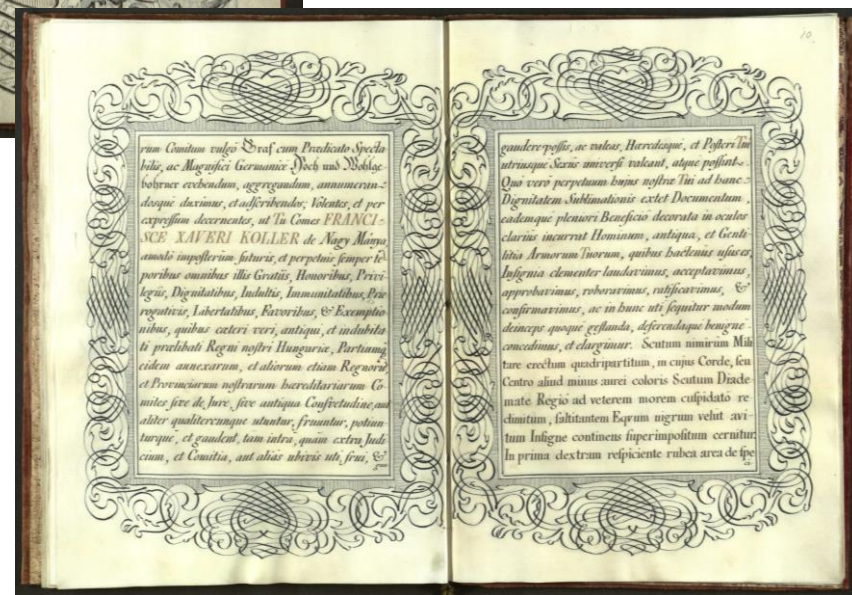 rum Comitum vulgò Graf cum Prædicato Specta
bilis, ac Magnifici Germanicè Hoch und Wohlge-
bohrner evehendum, aggregandum, annumeran-
dosque duximus, et adscribendos; Volentes, et per
expressum decernentes, ut Tu Comes FRANCI-
SCE XAVERI KOLLER de Nagy Mánya,
amodò imposterùm futuris, et perpetuis semper tē-
poribus omnibus illis Gratiis, Honoribus, Privi-
legiis, Dignitatibus, Indultis, Immunitatibus, Præ
rogativis, Libertatibus, Favoribus, & Exemptio
nibus, quibus cæteri veri, antiqui, et indubita
ti prælibati Regni nostri Hungariæ, Partiumq́
eidem annexarum, et aliorum etiam Regnorū,
et Provinciarum nostrarum hæreditariarum Co
mites sive de Jure, sive antiqua Consvetudine, aut
aliter qualitercunque utuntur, fruuntur, potiun
turque, et gaudent, tam intra, quàm extra Judi
cium, et Comitia, aut aliàs ubivis uti, frui, &
10.
gaudere possis, ac valeas, Hæredesque, et Posteri Tui
utriusque Sexûs universi valeant, atque possint.
Quò verò perpetuum hujus nostræ Tui ad hanc
Dignitatem Sublimationis extet Documentum,
eademque pleniori Beneficio decorata in oculos
clariùs incurrat Hominum, antiqua, et Genti
litia Armorum Tuorum, quibus hactenùs usus es,
Insignia clementer laudavimus, acceptavimus,
approbavimus, roboravimus, ratificavimus, &
confirmavimus, ac in hunc uti sequitur modum
deinceps quoque gestanda, deferendaque benignè
concedimus, et elargimur. Scutum nimirùm Mili
tare erectum quadripartitum, in cujus Corde, seu
Centro aliud minus aurei coloris Scutum Diade
mate Regio ad veterem morem cuspidato re
dimitum, saltitantem Eqvum nigrum velut avi
tum Insigne continens superimpositum cernitur.
In prima dextram respiciente rubea area de spe